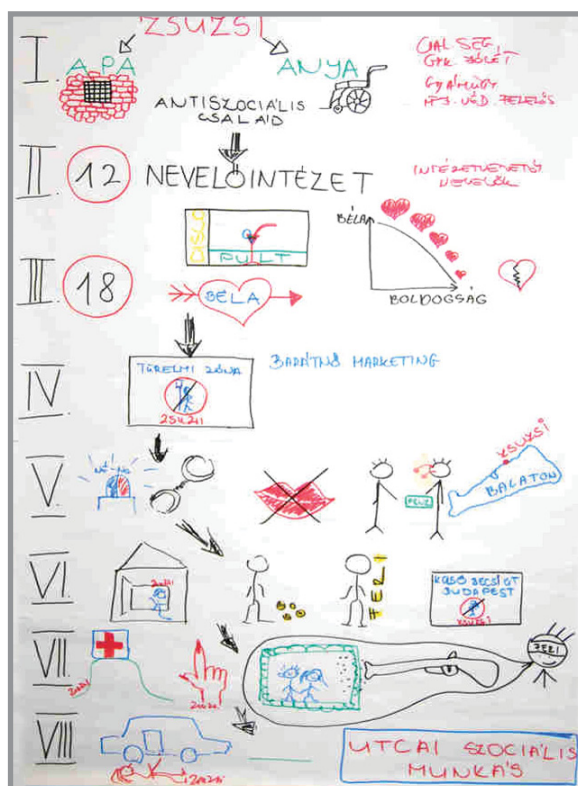 ZSUZSI
I.
APA
ANYA
ANTISZOCIÁLIS
CSALÁD
CSAL. SEG.
GYÁMÜGY
II.
12
NEVELŐINTÉZET
NEVELŐK
DISCO
PULT
BÉLA
BOLDOGSÁG
III.
18
BÉLA
IV.
TÜRELMI ZÓNA
ZSUZSI
BARÁTNŐ MARKETING
V.
NÉ-NÓ
PÉNZ
ZSUZSI
BALATON
VI.
ZSUZSI
FERI
KÜLSŐ BÉCSI ÚT
BUDAPEST
ZSUZSI
VII.
ZSUZSI
ZSUZSI
FERI
VIII.
ZSUZSI
UTCAI SZOCIÁLIS
MUNKÁS